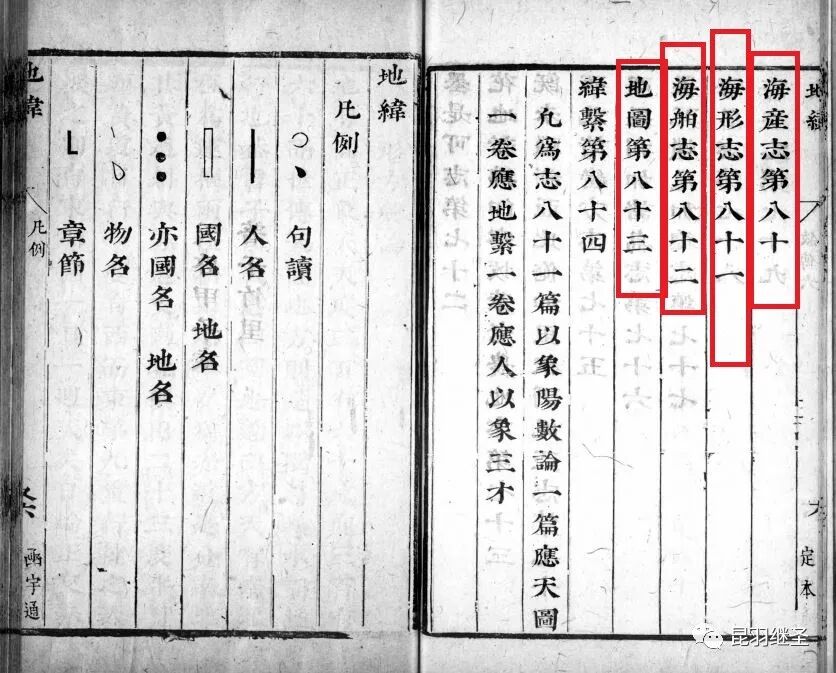 海産志第八十九
海形志第八十一
海舶志第八十二
地圖第八十三
緯繫第八十四
凡爲志八十一篇以象陽數論一篇應天圖
一卷應地繫一卷應人以象三才
定本
地緯
凡例
句讀
人名
國名 地名
亦國名 地名
物名
章節
地緯
凡例
函宇通
昆羽继圣